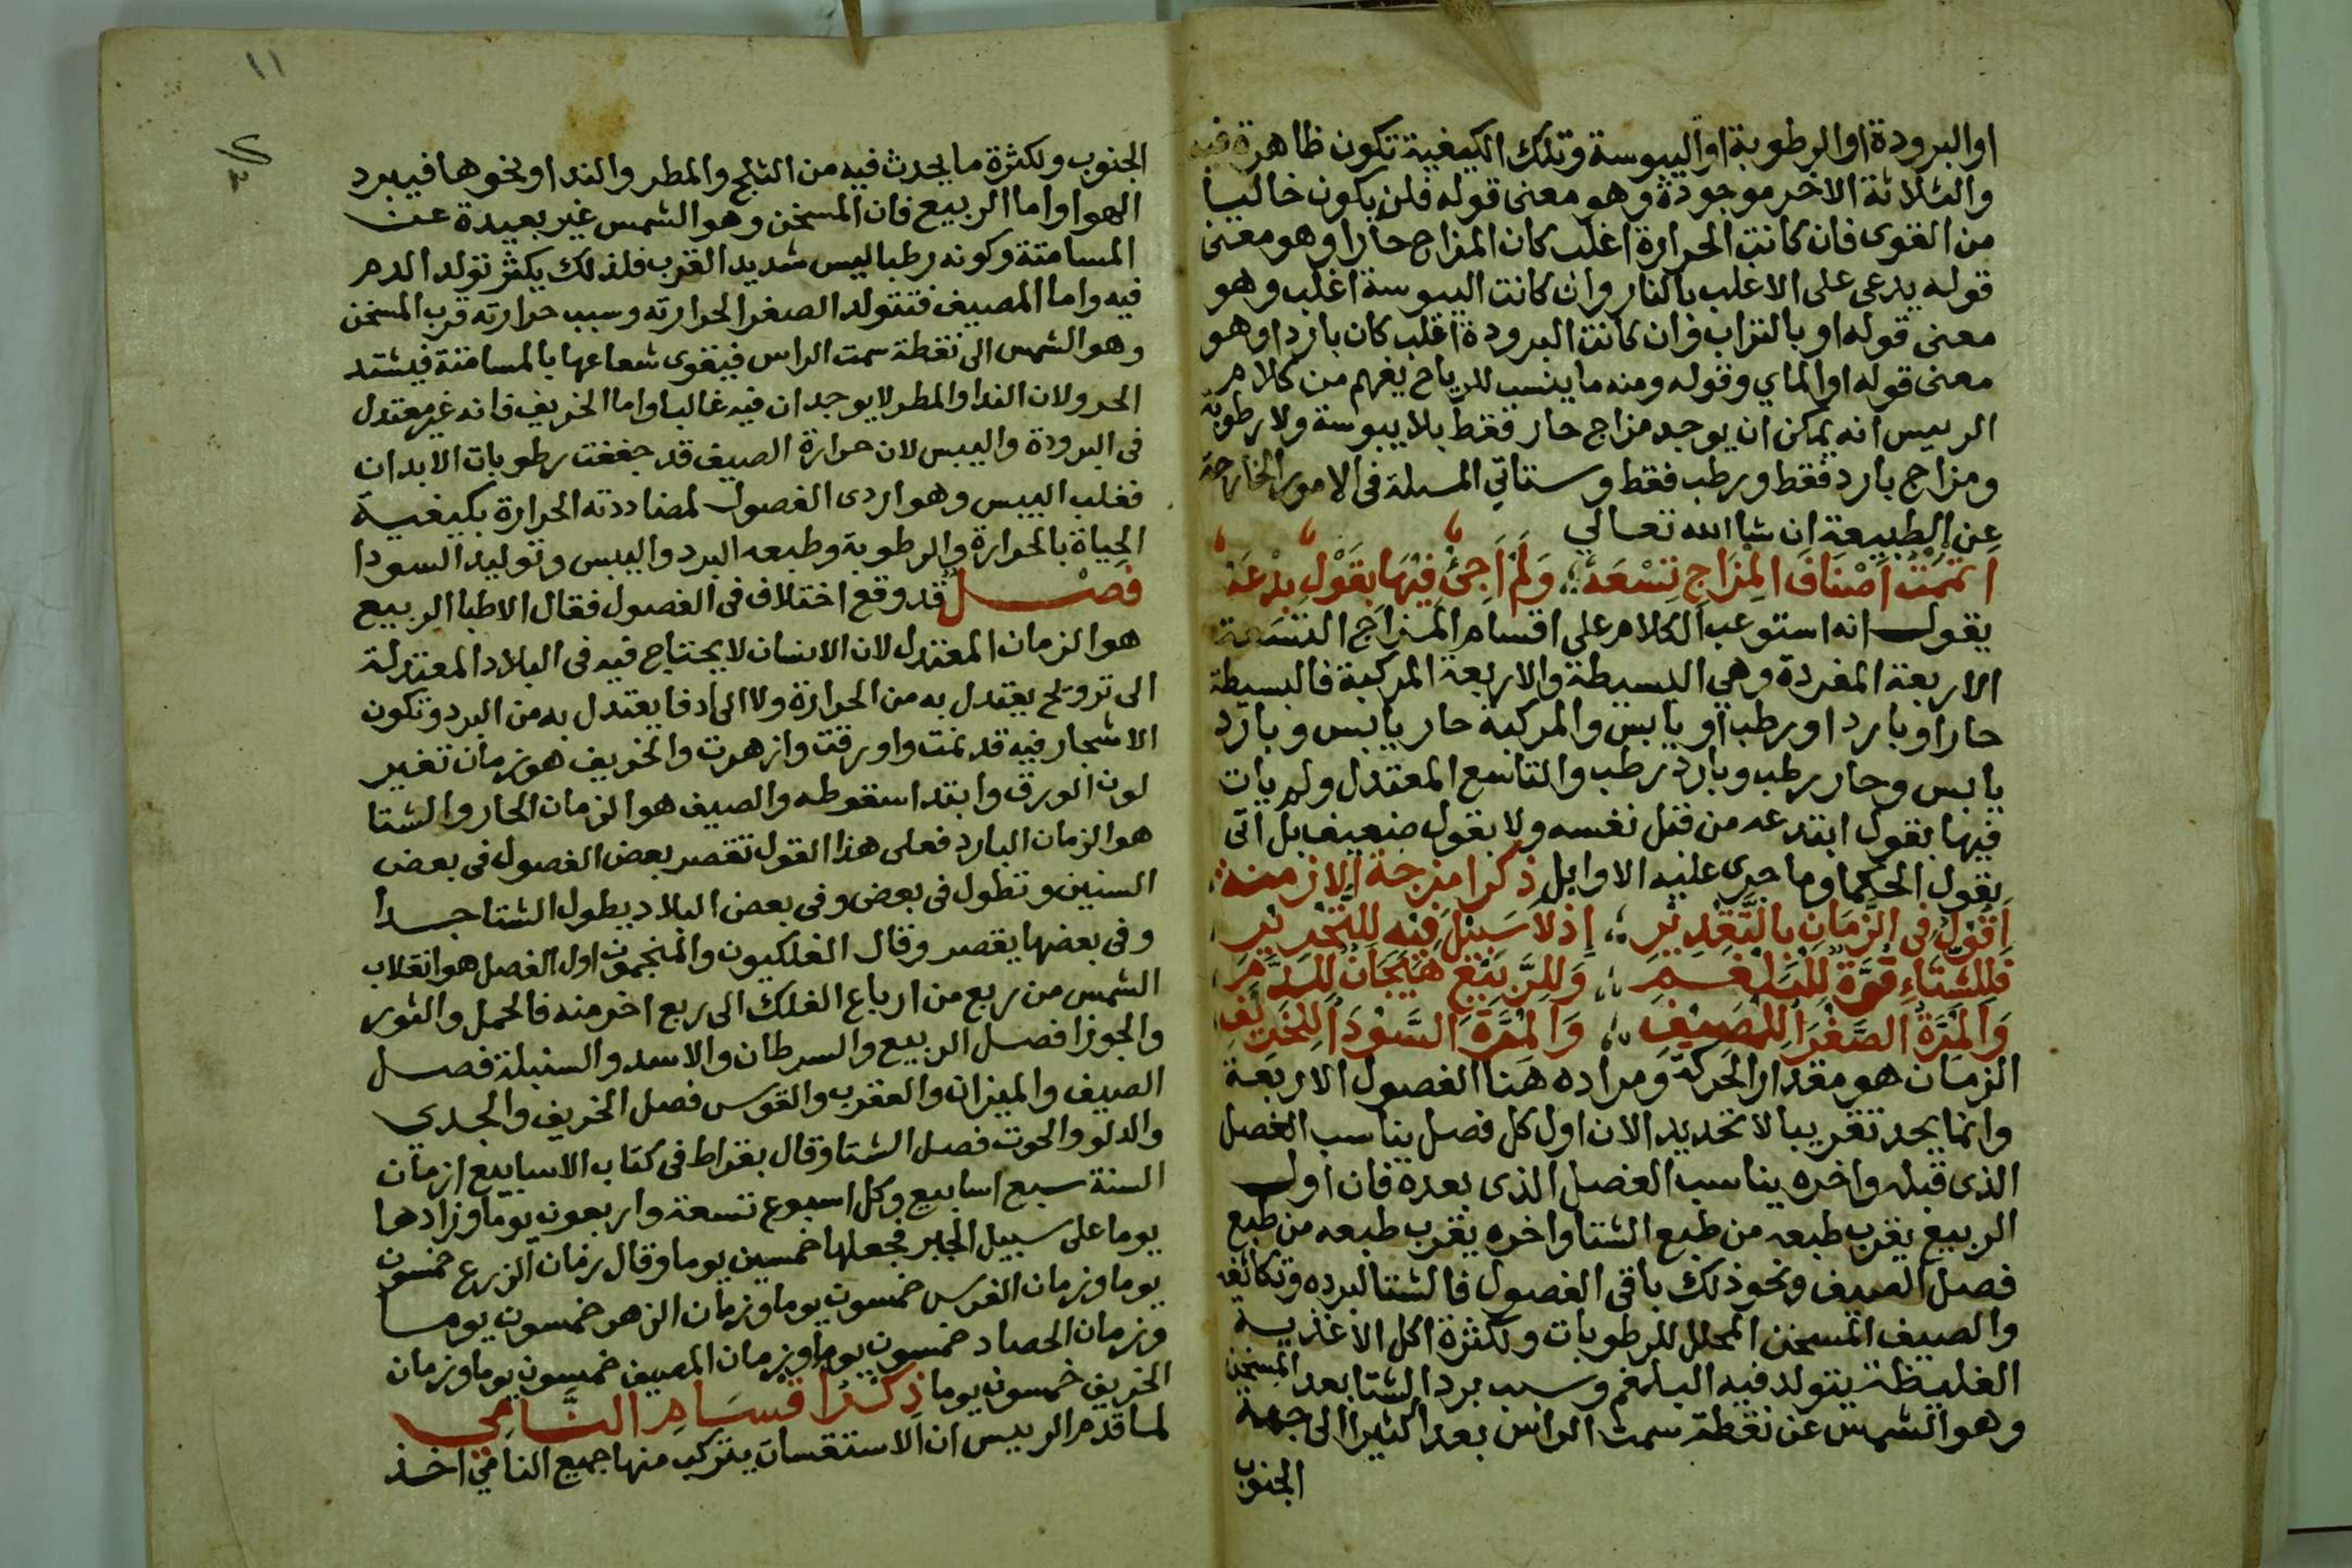 او البرودة او الرطوبة او اليبوسة وتلك الكيفية تكون ظاهرة فيه
والثلاثة الاخر موجودة وهو معنى قوله فلن يكون خاليا
من القوى فان كانت الحرارة اغلب كان المزاج حارا وهو معنى
قوله يدعى على الاغلب بالنار وان كانت اليبوسة اغلب وهو
معنى قوله او بالتراب وان كانت البرودة اغلب كان باردا وهو
معنى قوله او الماي وقوله ومنه ما ينسب للرياح يفهم من كلام
الرييس انه يمكن ان يوجد مزاج حار فقط بلا يبوسة ولا رطوبة
ومزاج بارد فقط ورطب فقط وستاتي المسلة في الامور الخارجة
عن الطبيعة ان شا الله تعالي
اتممت اصناف المزاج تسعه ولم اجئ فيها بقول بدعه
يقول انه استوعب الكلام على اقسام المزاج التسعة
الاربعة المفردة وهي البسيطة والاربعة المركبة فالبسيطة
حار او بارد او رطب او يابس والمركبة حار يابس وبارد
يابس وحار رطب وبارد رطب والتاسع المعتدل ولم يات
فيها بقول ابتدعه من قبل نفسه ولا بقول ضعيف بل اتى
بقول الحكما وما جرى عليه الاوايل ذكر امزجة الازمنه
اقول في الزمان بالتقدير اذ لا سبيل فيه للتحرير
فللشتاء قوة للبلغم وللربيع هيجان للدم
والمرة الصفرا للمصيف والمرة السودا للخريف
الزمان هو مقدار الحركة ومراده هنا الفصول الاربعة
وانما يحد تقريبا لا تحديدا لان اول كل فصل يناسب الفصل
الذى قبله واخره يناسب الفصل الذى بعده فان اول
الربيع يقرب طبعه من طبع الشتا واخره يقرب طبعه من طبع
فصل الصيف ونحو ذلك باقى الفصول فالشتا لبرده وتكاثفه
والصيف المسخن المحلل للرطوبات ولكثرة اكل الاغذية
الغليظة يتولد فيه البلغم وسبب برد الشتا بعد المسخن
وهو الشمس عن نقطة سمت الراس بعدا كثيرا الى جهة
الجنوب
١١
الجنوب ولكثرة ما يحدث فيه من الثلج والمطر والندا ونحوها فيبرد
الهوا واما الربيع فان المسخن وهو الشمس غير بعيدة عن
المسامتة وكونه رطبا ليس شديد القرب فلذلك يكثر تولد الدم
فيه واما المصيف فتتولد الصفرا لحرارته وسبب حرارته قرب المسخن
وهو الشمس الى نقطة سمت الراس فيقوى شعاعها بالمسامتة فيشتد
الحر ولان الندا والمطر لا يوجدان فيه غالبا واما الخريف فانه غير معتدل
في البرودة واليبس لان حرارة الصيف قد جففت رطوبات الابدان
فغلب اليبس وهو اردى الفصول لمضاددته الحرارة بكيفية
الحياة بالحرارة والرطوبة وطبعه البرد واليبس وتوليد السودا
فصل قد وقع اختلاف في الفصول فقال الاطبا الربيع
هو الزمان المعتدل لان الانسان لا يحتاج فيه في البلاد المعتدلة
الى ترويح يعتدل به من الحرارة ولا الى ادفا يعتدل به من البرد وتكون
الاشجار فيه قد نمت واورقت وازهرت والخريف هو زمان تغير
لون الورق وابتدا سقوطه والصيف هو الزمان الحار والشتا
هو الزمان البارد فعلى هذا القول تقصر بعض الفصول في بعض
السنين وتطول في بعض وفي بعض البلاد يطول الشتا جدا
وفي بعضها يقصر وقال الفلكيون والمنجمون اول الفصل هو انقلاب
الشمس من ربع من ارباع الفلك الى ربع اخر منه فالحمل والثور
والجوزا فصل الربيع والسرطان والاسد والسنبلة فصل
الصيف والميزان والعقرب والقوس فصل الخريف والجدي
والدلو والحوت فصل الشتا وقال بقراط في كتاب الاسابيع ازمان
السنة سبع اسابيع وكل اسبوع تسعة واربعون يوما وزادها
يوما على سبيل الجبر فجعلها خمسين يوما وقال زمان الزرع خمسون
يوما وزمان الغرس خمسون يوما وزمان الزهر خمسون يوما
وزمان الحصاد خمسون يوما وزمان المصيف خمسون يوما وزمان
الخريف خمسون يوما ذكر اقسام النامي
لما قدم الرييس ان الاستقسات يتركب منها جميع النامي اخذ